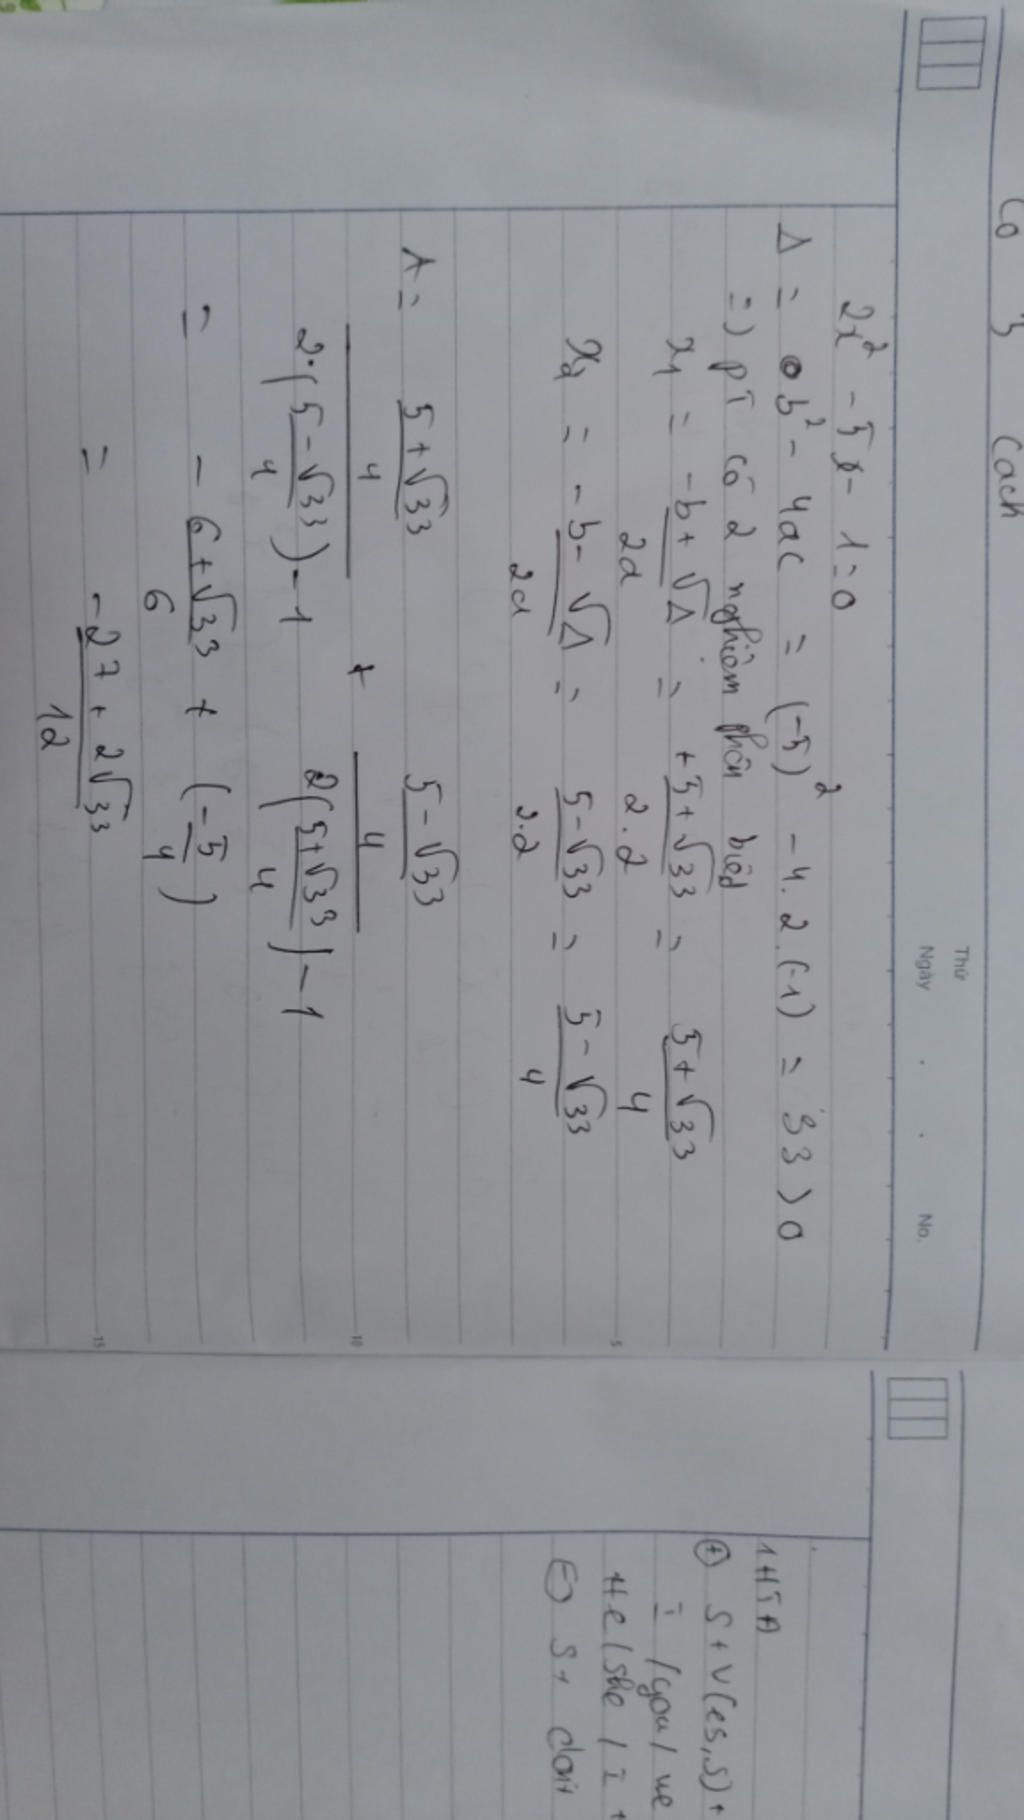 Có 3 cách
Thứ
Ngày . . No.
2x² - 5x - 1 = 0
Δ = b² - 4ac = (-5)² - 4.2.(-1) = 33 > 0
=) PT có 2 nghiệm phân biệt
x₁ = (-b + √Δ)/2a = (+5 + √33)/2.2 = (5 + √33)/4
x₂ = (-b - √Δ)/2a = (5 - √33)/2.2 = (5 - √33)/4
A = ((5 + √33)/4)/(2.((5 - √33)/4) - 1) + ((5 - √33)/4)/(2((5 + √33)/4) - 1)
= -(6 + √33)/6 + (-5/4)
= (-27 + 2√33)/12
5
10
15
1 HTĐ
(+) S + V(es,s) +
I / you / we
He / she / I +
(-) S + don't